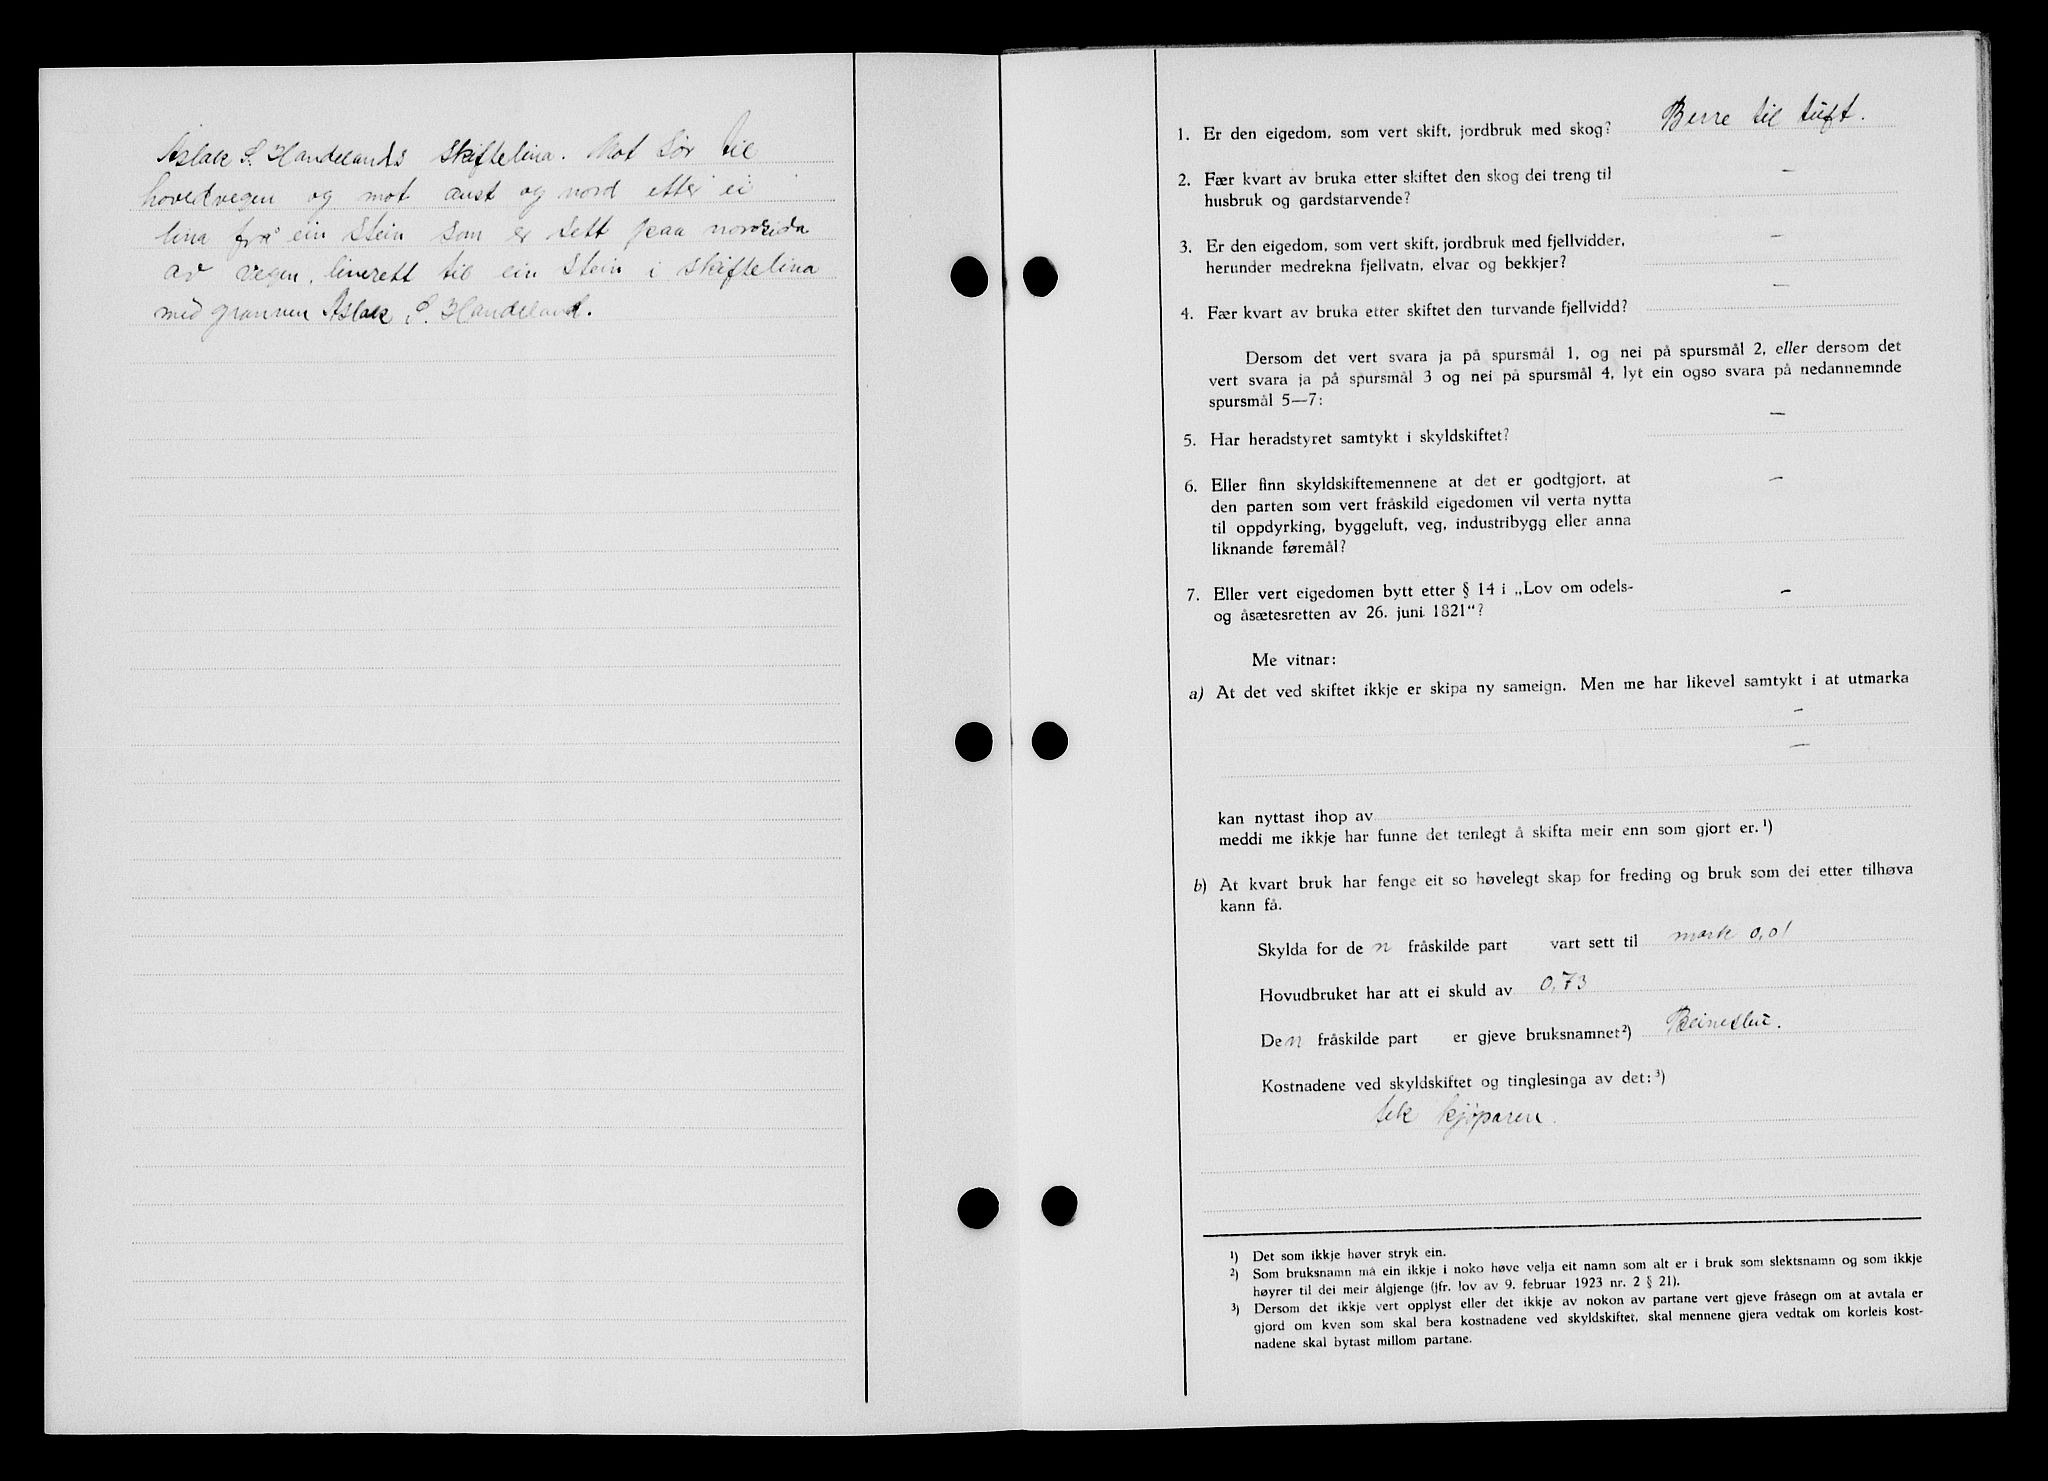 Aslak S. Handelands skiftelina. Mot sør til
hovedvegen og mot aust og nord etter ei
lina frå ein stein som er sett paa nordsida
av vegen, linerett til ein stein i skiftelina
med grannen Aslak S. Handeland.
1. Er den eigedom, som vert skift, jordbruk med skog? Berre til tuft.
2. Fær kvart av bruka etter skiftet den skog dei treng til —
husbruk og gardstarvende?
3. Er den eigedom, som vert skift, jordbruk med fjellvidder, —
herunder medrekna fjellvatn, elvar og bekkjer?
4. Fær kvart av bruka etter skiftet den turvande fjellvidd? —
Dersom det vert svara ja på spursmål 1, og nei på spursmål 2, eller dersom det
vert svara ja på spursmål 3 og nei på spursmål 4, lyt ein ogso svara på nedannemnde
spursmål 5—7:
5. Har heradstyret samtykt i skyldskiftet? —
6. Eller finn skyldskiftemennene at det er godtgjort, at —
den parten som vert fråskild eigedomen vil verta nytta
til oppdyrking, byggeluft, veg, industribygg eller anna
liknande føremål?
7. Eller vert eigedomen bytt etter § 14 i „Lov om odels- —
og åsætesretten av 26. juni 1821“?
Me vitnar:
a) At det ved skiftet ikkje er skipa ny sameign. Men me har likevel samtykt i at utmarka
—
—
kan nyttast ihop av
meddi me ikkje har funne det tenlegt å skifta meir enn som gjort er.¹)
b) At kvart bruk har fenge eit so høvelegt skap for freding og bruk som dei etter tilhøva
kann få.
Skylda for de n fråskilde part vart sett til mark 0,01
Hovudbruket har att ei skuld av 0,73
De n fråskilde part er gjeve bruksnamnet²)
Kostnadene ved skyldskiftet og tinglesinga av det:³)
tek kjøparen.
¹) Det som ikkje høver stryk ein.
²) Som bruksnamn må ein ikkje i noko høve velja eit namn som alt er i bruk som slektsnamn og som ikkje
høyrer til dei meir ålgjenge (jfr. lov av 9. februar 1923 nr. 2 § 21).
³) Dersom det ikkje vert opplyst eller det ikkje av nokon av partane vert gjeve fråsegn om at avtala er
gjord om kven som skal bera kostnadene ved skyldskiftet, skal mennene gjera vedtak om korleis kost-
nadene skal bytast millom partane.